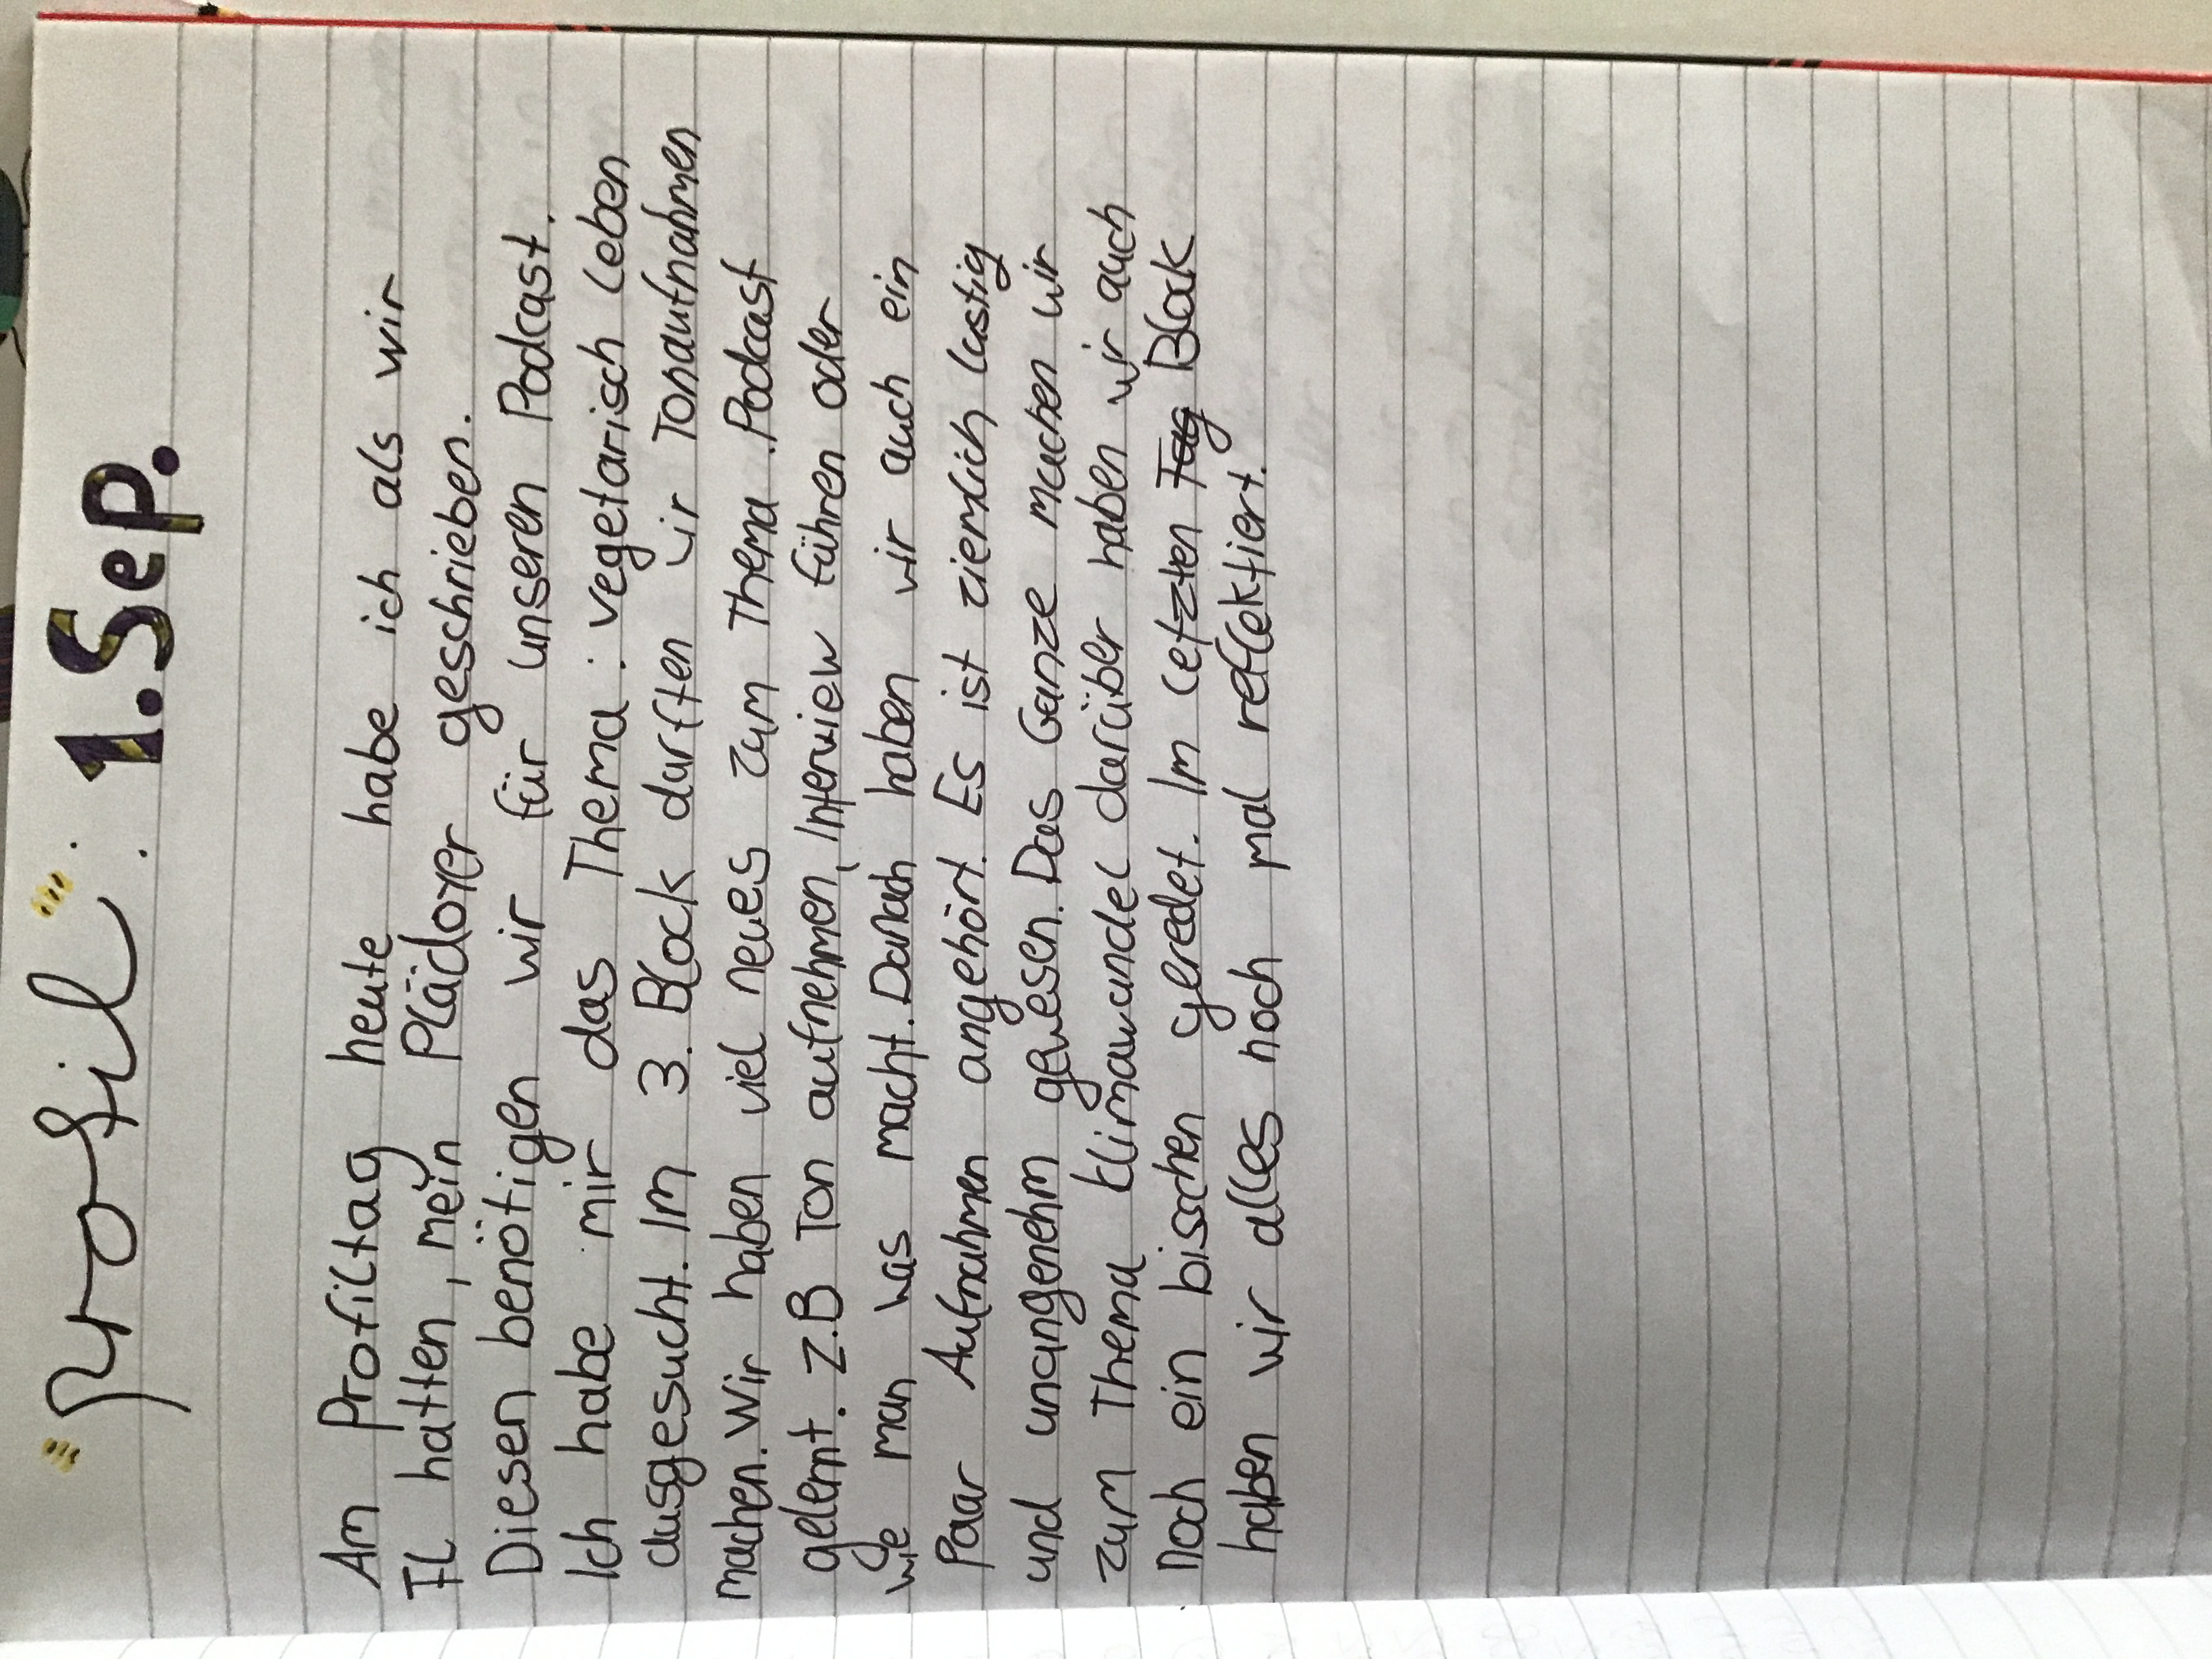 "Profil". 1. Sep.
Am Profiltag heute habe ich als wir
FL hatten, mein Plädoyer geschrieben.
Diesen benötigen wir für unseren Podcast.
Ich habe mir das Thema: vegetarisch leben
ausgesucht. Im 3. Block durften wir Tonaufnahmen
machen. Wir haben viel neues zum Thema Podcast
gelernt. z.B Ton aufnehmen, Interview führen oder
wie man was macht. Danach haben wir auch ein
Paar Aufnahmen angehört. Es ist ziemlich lustig
und unangenehm gewesen. Das Ganze machen wir
zum Thema klimawandel darüber haben wir auch
noch ein bisschen geredet. Im letzten Tag Block
haben wir alles noch mal reflektiert.